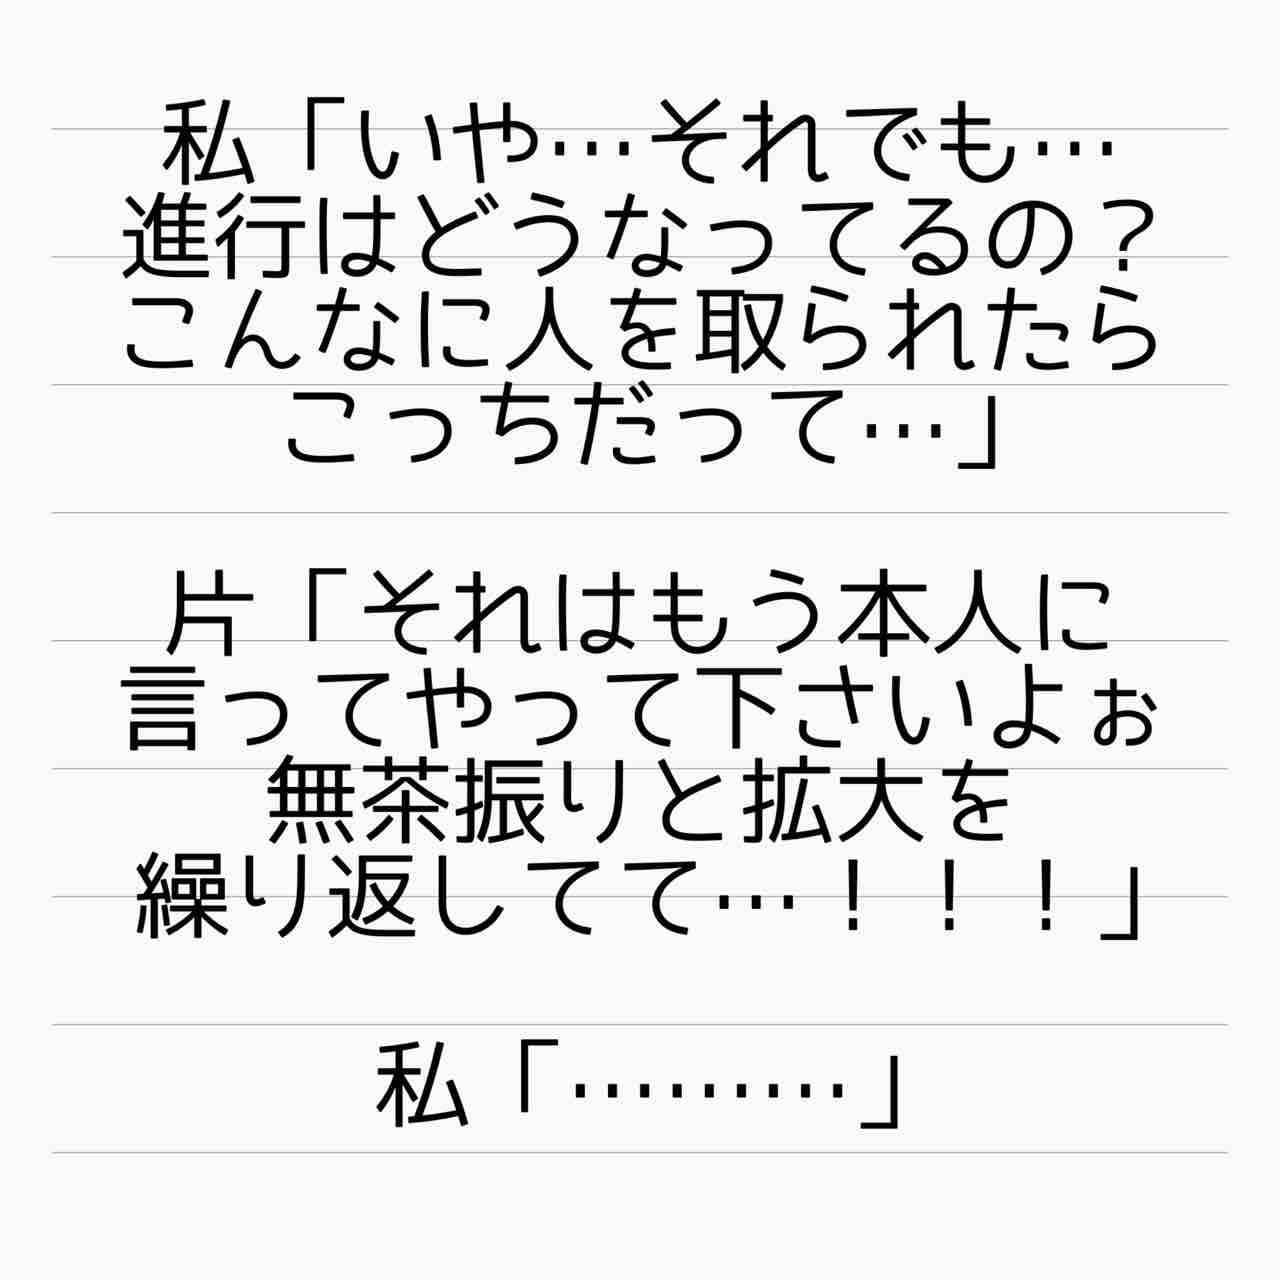 私「いや…それでも…
進行はどうなってるの？
こんなに人を取られたら
こっちだって…」
片「それはもう本人に
言ってやって下さいよぉ
無茶振りと拡大を
繰り返してて…！！！」
私「………」